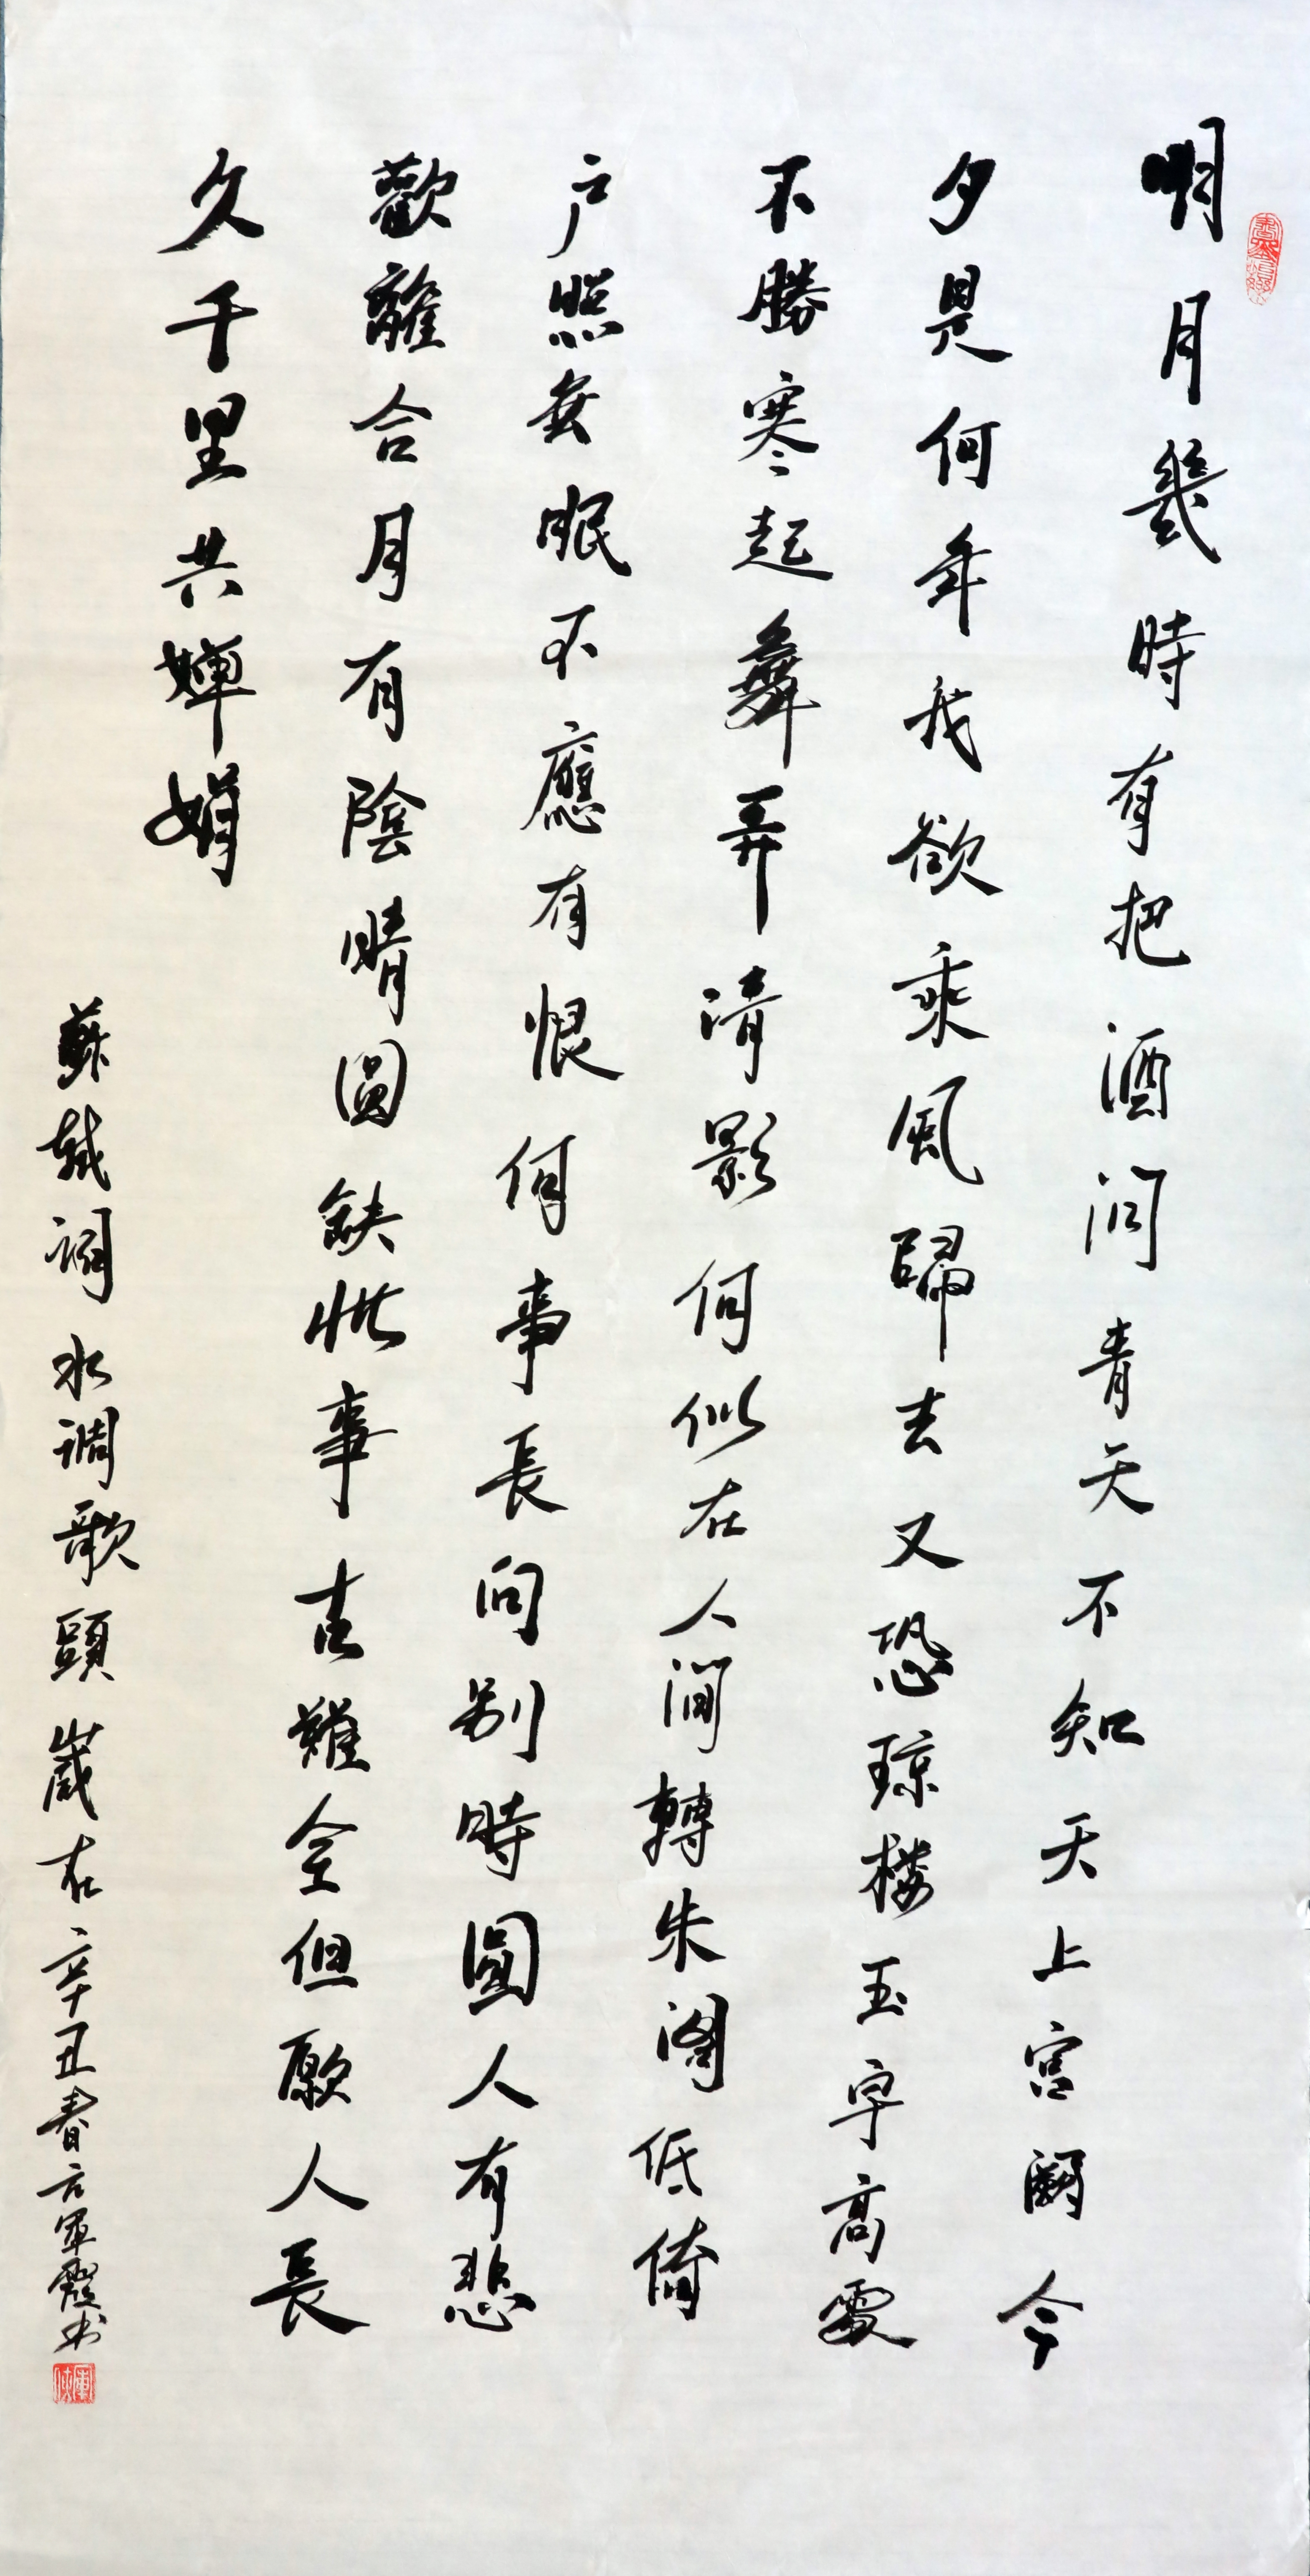 明月幾時有把酒問青天不知天上宫闕今
夕是何年我欲乘風歸去又恐琼楼玉宇高處
不勝寒起舞弄清影何似在人間轉朱閣低倚
户照無眠不應有恨何事長向别時圓人有悲
歡離合月有陰晴圓缺此事古難全但願人長
久千里共嬋娟
蘇軾詞水調歌頭歲在辛丑春方軍霞书